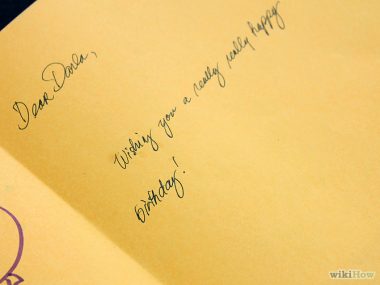 Dear Darla,
Wishing you a really really happy
birthday!
wikiHow